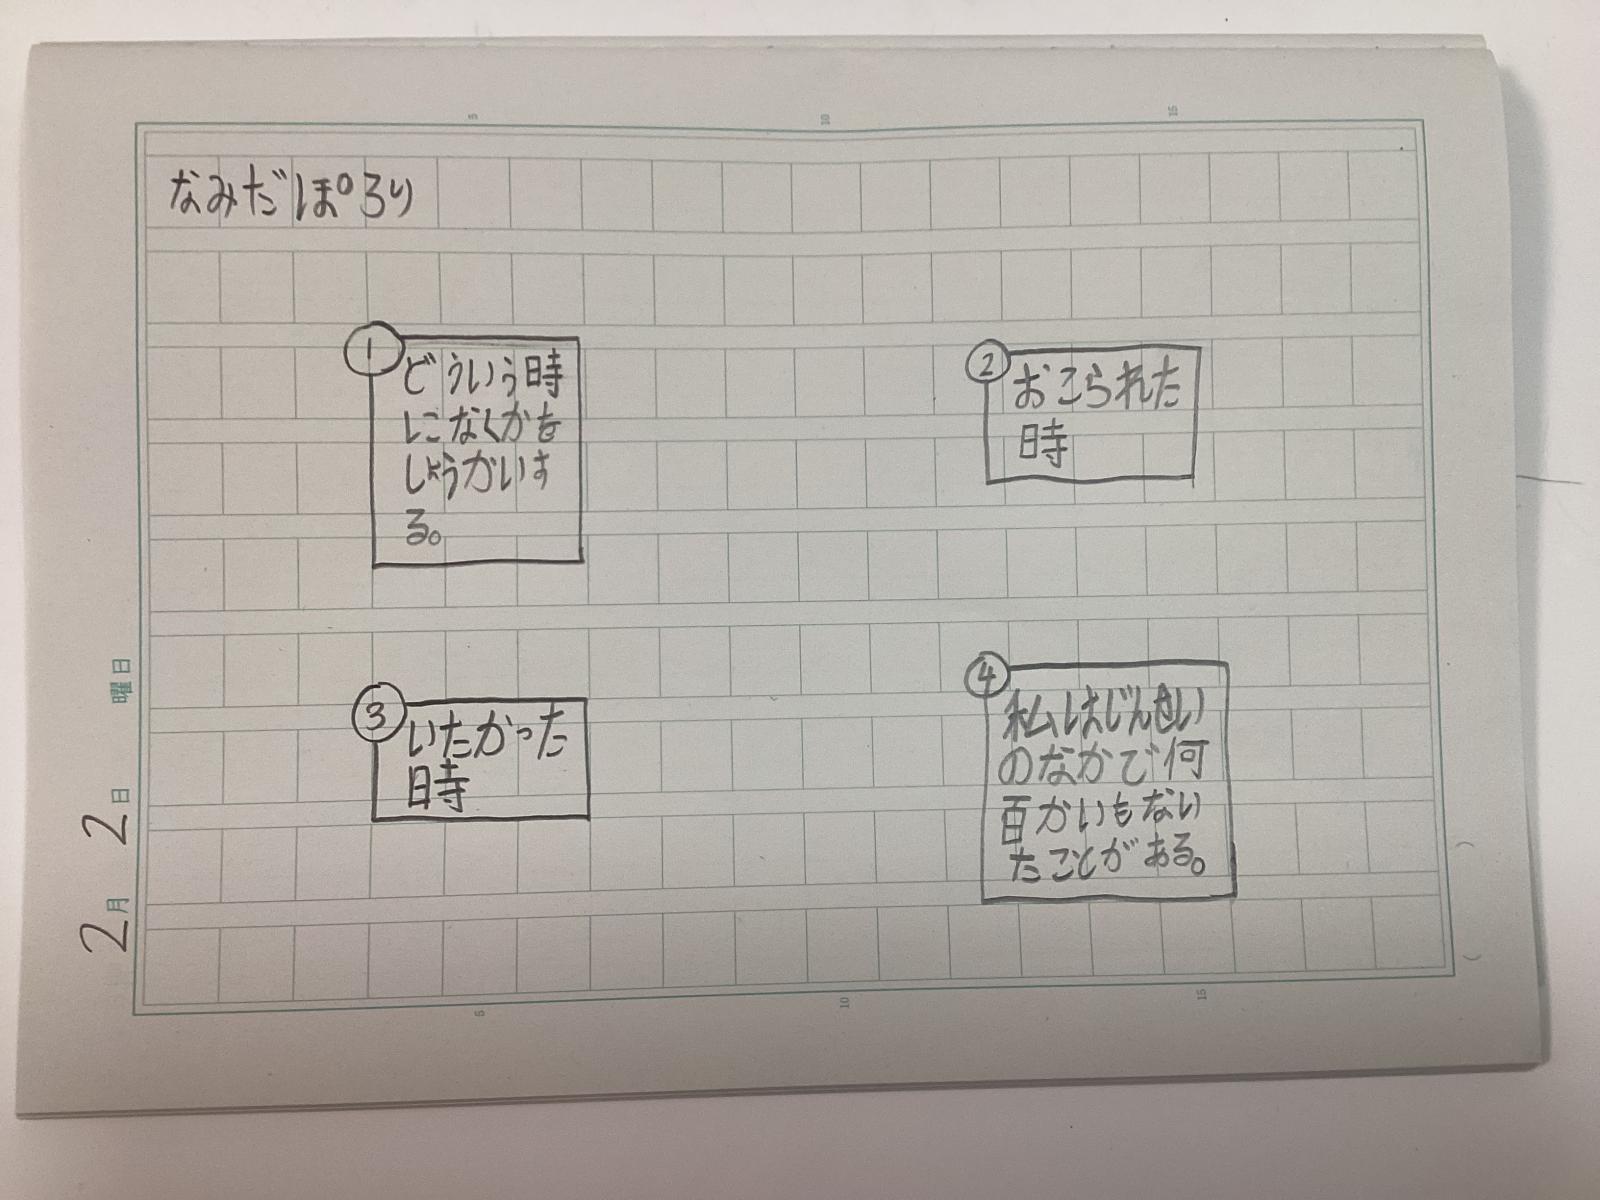 なみだぽろり
①
どういう時
になくかを
しょうかいす
る。
②
おこられた
時
③
いたかった
時
④
私はじんせい
のなかで何
百かいもない
たことがある。
2月2日 曜日
5
10
15
5
10
15